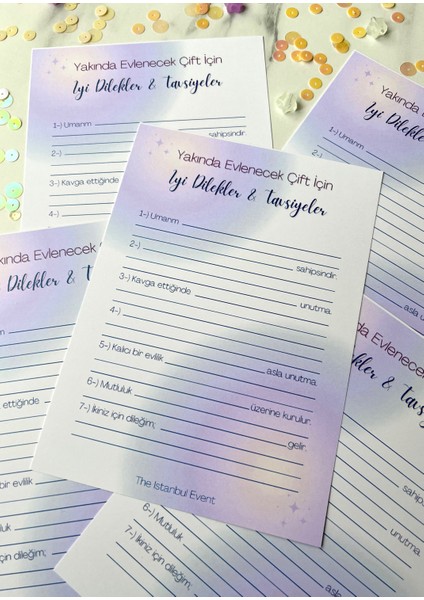 Yakında Evlenecek Çift İçin
İyi Dilekler & Tavsiyeler
1-) Umarım
sahipsindir.
2-)
3-) Kavga ettiğinde
4-)
Yakında
İyi Dilekler
1-) Umarım
2-)
asla
Yakında Evlenecek Çift İçin
İyi Dilekler & Tavsiyeler
1-) Umarım
sahipsindir.
2-)
3-) Kavga ettiğinde
unutma.
4-)
5-) Kalıcı bir evlilik
asla unutma.
6-) Mutluluk
üzerine kurulur.
7-) İkiniz için dileğim;
gelir.
The Istanbul Event
Evlenecek
Dilekler &
ettiğinde
bir evlilik
için dileğim;
Evlenecek
Dilekler &
unutma.
asla
6-) Mutluluk
7-) İkiniz için dileğim;